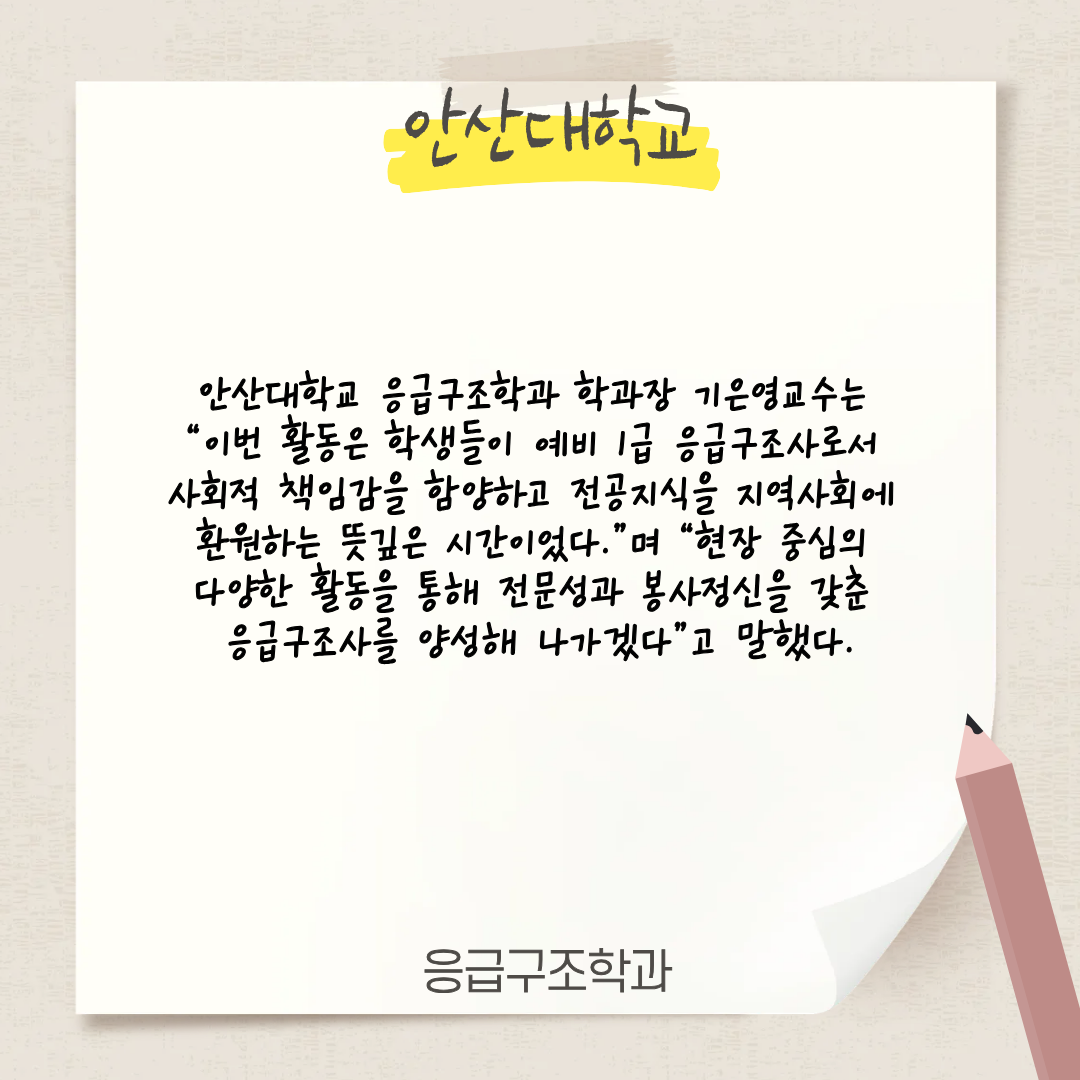 안산대학교
안산대학교 응급구조학과 학과장 기은영교수는
“이번 활동은 학생들이 예비 1급 응급구조사로서
사회적 책임감을 함양하고 전공지식을 지역사회에
환원하는 뜻깊은 시간이었다.”며 “현장 중심의
다양한 활동을 통해 전문성과 봉사정신을 갖춘
응급구조사를 양성해 나가겠다”고 말했다.
응급구조학과